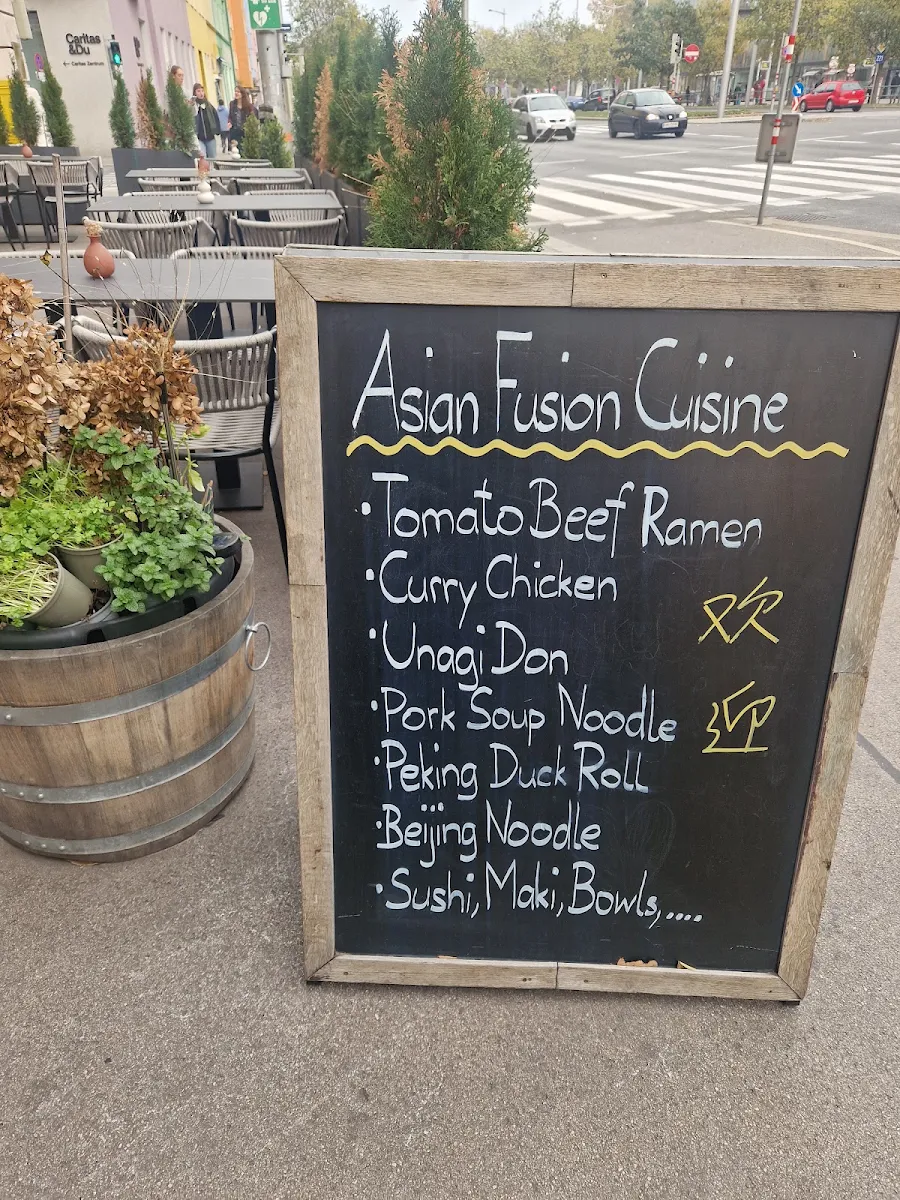 Caritas
&Du
← Caritas Zentrum
Asian Fusion Cuisine
·Tomato Beef Ramen
·Curry Chicken
·Unagi Don
·Pork Soup Noodle
·Peking Duck Roll
·Beijing Noodle
·Sushi, Maki, Bowls,....
欢
迎